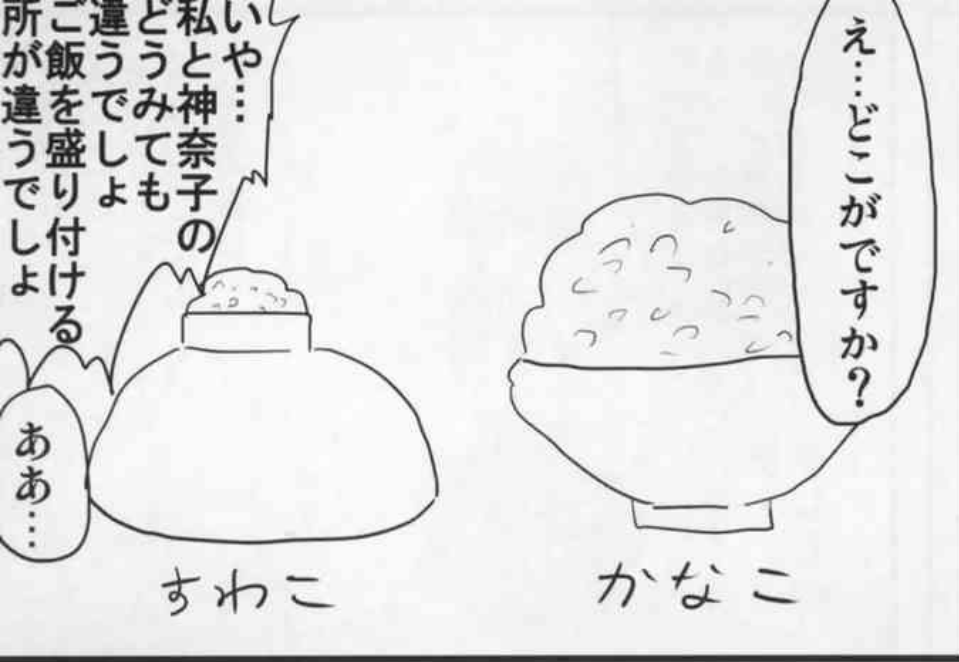 え…どこがですか?
いや…
私と神奈子の
どうみても
違うでしょ
ご飯を盛り付ける
所が違うでしょ
ああ…
かなこ
すわこ